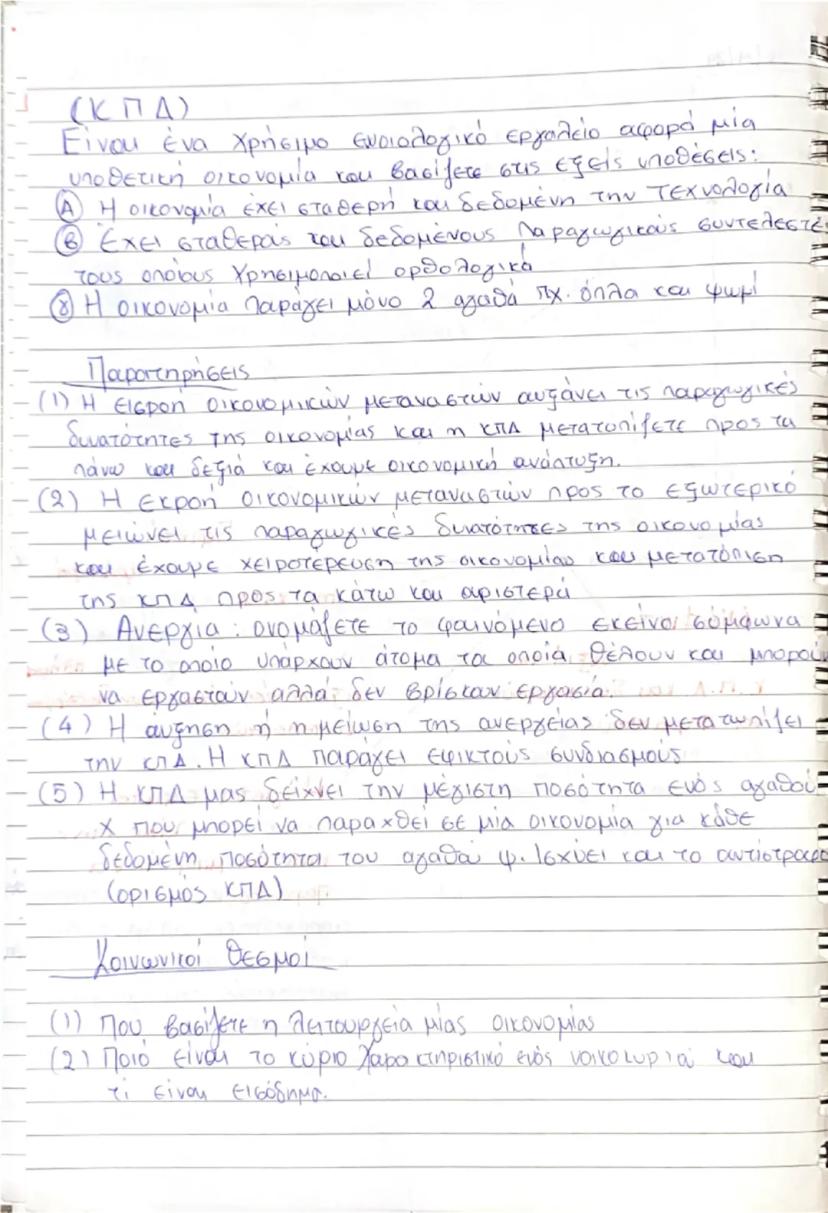 (Κ Π Δ)
Είναι ένα χρήσιμο ενοιολογικό εργαλείο αφορά μία
υποθετική οικονομία και βασίζετε στις εξείς υποθέσεις:
Α Η οικονομία έχει σταθερή και δεδομένη την τεχνολογία
Β Έχει σταθερούς και δεδομένους παραγωγικούς συντελεστέ
τους οποίους χρησιμοποιεί ορθολογικά
γ Η οικονομία παράγει μόνο 2 αγαθά πχ. όπλα και ψωμί
Παρατηρήσεις
(1) Η εισροή οικονομικών μεταναστών αυξάνει τις παραγωγικές
δυνατότητες της οικονομίας και η ΚΠΔ μετατοπίζετε προς τα
πάνω και δεξιά και έχουμε οικονομική ανάπτυξη.
(2) Η εκροή οικονομικών μεταναστών προς το εξωτερικό
μειώνει τις παραγωγικές δυνατότητες της οικονομίας
και έχουμε χειροτέρευση της οικονομίας και μετατόπιση
της ΚΠΔ προς τα κάτω και αριστερά
(3) Ανεργία: ονομάζετε το φαινόμενο εκείνο σύμφωνα
με το οποίο υπάρχουν άτομα τα οποία θέλουν και μπορούν
να εργαστούν αλλά δεν βρίσκουν εργασία
(4) Η άυξηση ή η μείωση της ανεργείας δεν μετατωπίζει
την ΚΠΔ. Η ΚΠΔ παράγει εφικτούς συνδιασμούς
(5) Η ΚΠΔ μας δείχνει την μέγιστη ποσότητα ενός αγαθού
Χ που μπορεί να παραχθεί σε μία οικονομία για κάθε
δεδομένη ποσότητα του αγαθού ψ. Ισχύει και το αντίστροφο
(ορισμός ΚΠΔ)
Κοινωνικοί Θεσμοί
(1) Που βασίζετε η λειτουργεία μίας οικονομίας
(2) Ποιό είναι το κύριο χαρακτηριστικό ενός νοικοκυριού και
τί είναι εισόδημα.